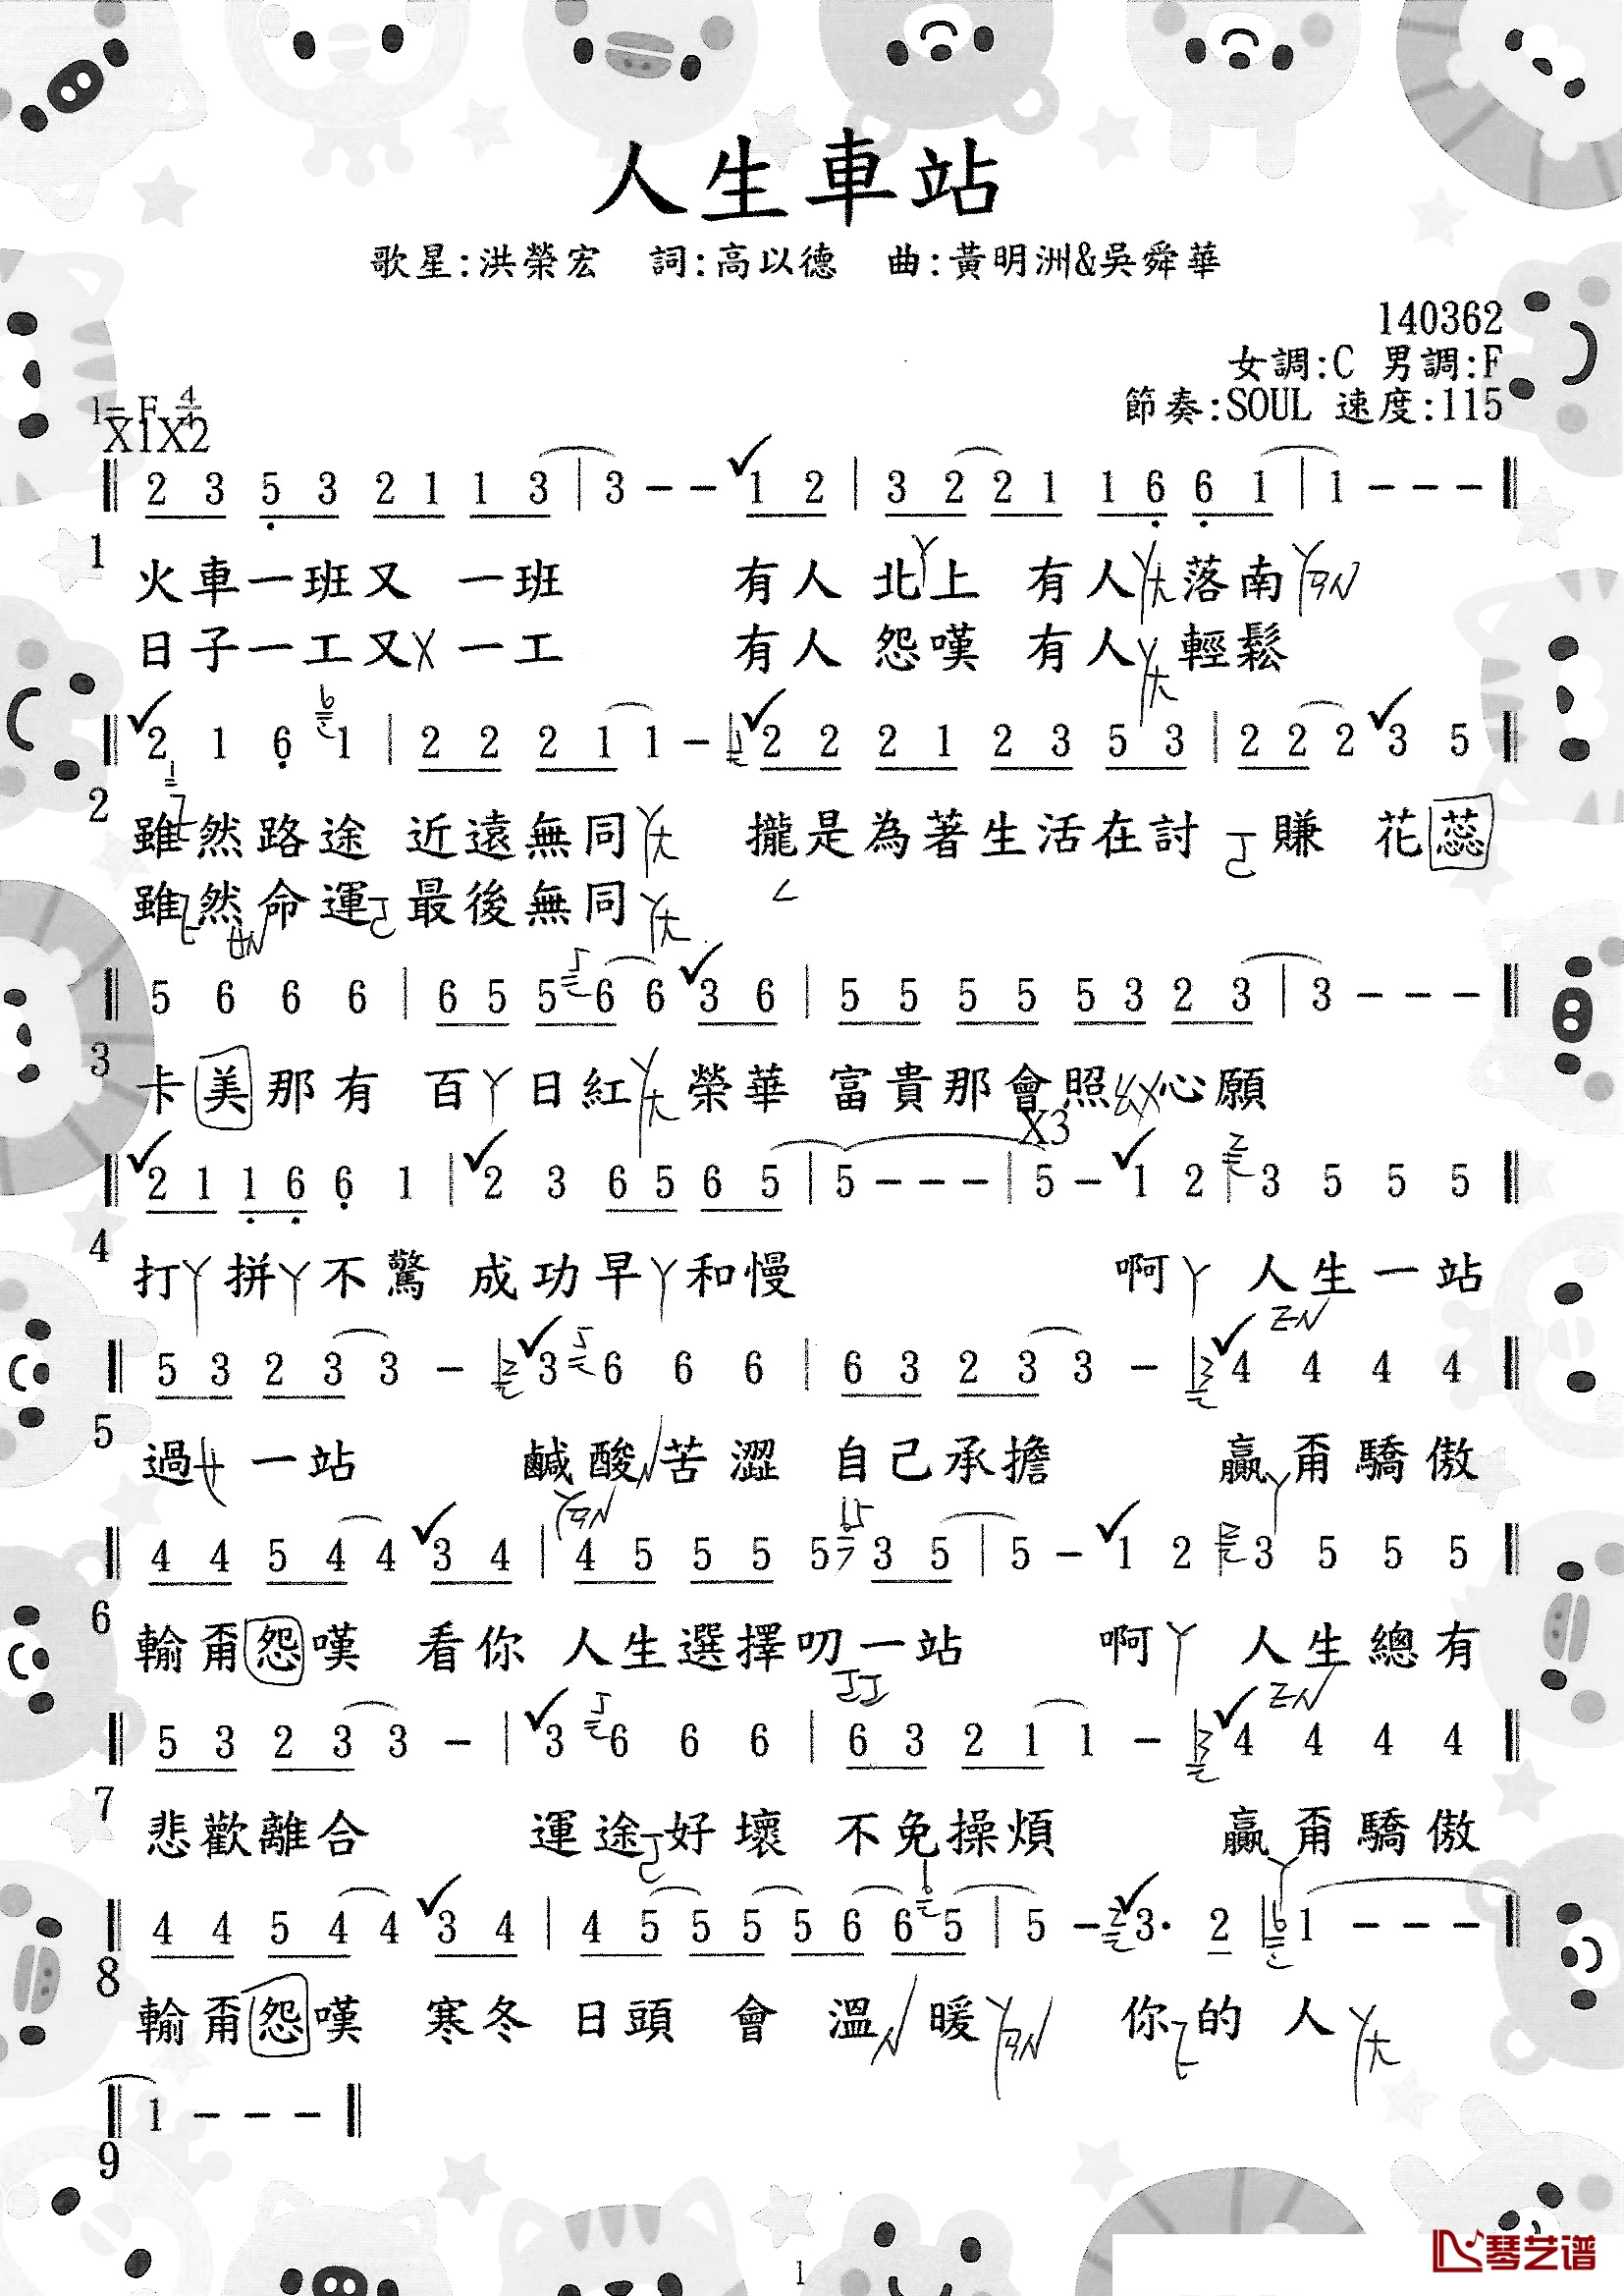 人生車站
歌星:洪榮宏 詞:高以德 曲:黃明洲&吳舜華
140362
女調:C 男調:F
1=F 4/4
節奏:SOUL 速度:115
X1X2
2 3 5 3 2 1 1 3 | 3 - - 1 2 | 3 2 2 1 1 6 6 1 | 1 - - -
1
火車一班又 一班 有人 北上 有人 落南
日子一工又 一工 有人 怨嘆 有人 輕鬆
2 1 6 1 | 2 2 2 1 1 - | 2 2 2 1 2 3 5 3 | 2 2 2 3 5
2
雖然路途 近遠無同 攏是為著生活在討 賺 花蕊
雖然命運 最後無同
5 6 6 6 | 6 5 5 6 6 3 6 | 5 5 5 5 5 3 2 3 | 3 - - -
3
卡美那有 百 日紅 榮華 富貴那會照 心願
X3
2 1 1 6 6 1 | 2 3 6 5 6 5 | 5 - - - | 5 - 1 2 | 3 5 5 5
4
打 拼 不驚 成功早 和慢 啊 人生一站
5 3 2 3 3 - | 3 6 6 6 | 6 3 2 3 3 - | 4 4 4 4
5
過 一站 鹹酸 苦澀 自己承擔 贏甭驕傲
4 4 5 4 4 3 4 | 4 5 5 5 5 3 5 | 5 - 1 2 | 3 5 5 5
6
輸甭怨嘆 看你 人生選擇叨一站 啊 人生總有
5 3 2 3 3 - | 3 6 6 6 | 6 3 2 1 1 - | 4 4 4 4
7
悲歡離合 運途 好壞 不免操煩 贏甭驕傲
4 4 5 4 4 3 4 | 4 5 5 5 5 6 6 5 | 5 - 3· 2 | 1 - - -
8
輸甭怨嘆 寒冬 日頭 會 溫 暖 你 的 人
1 - - -
9
1
琴艺谱